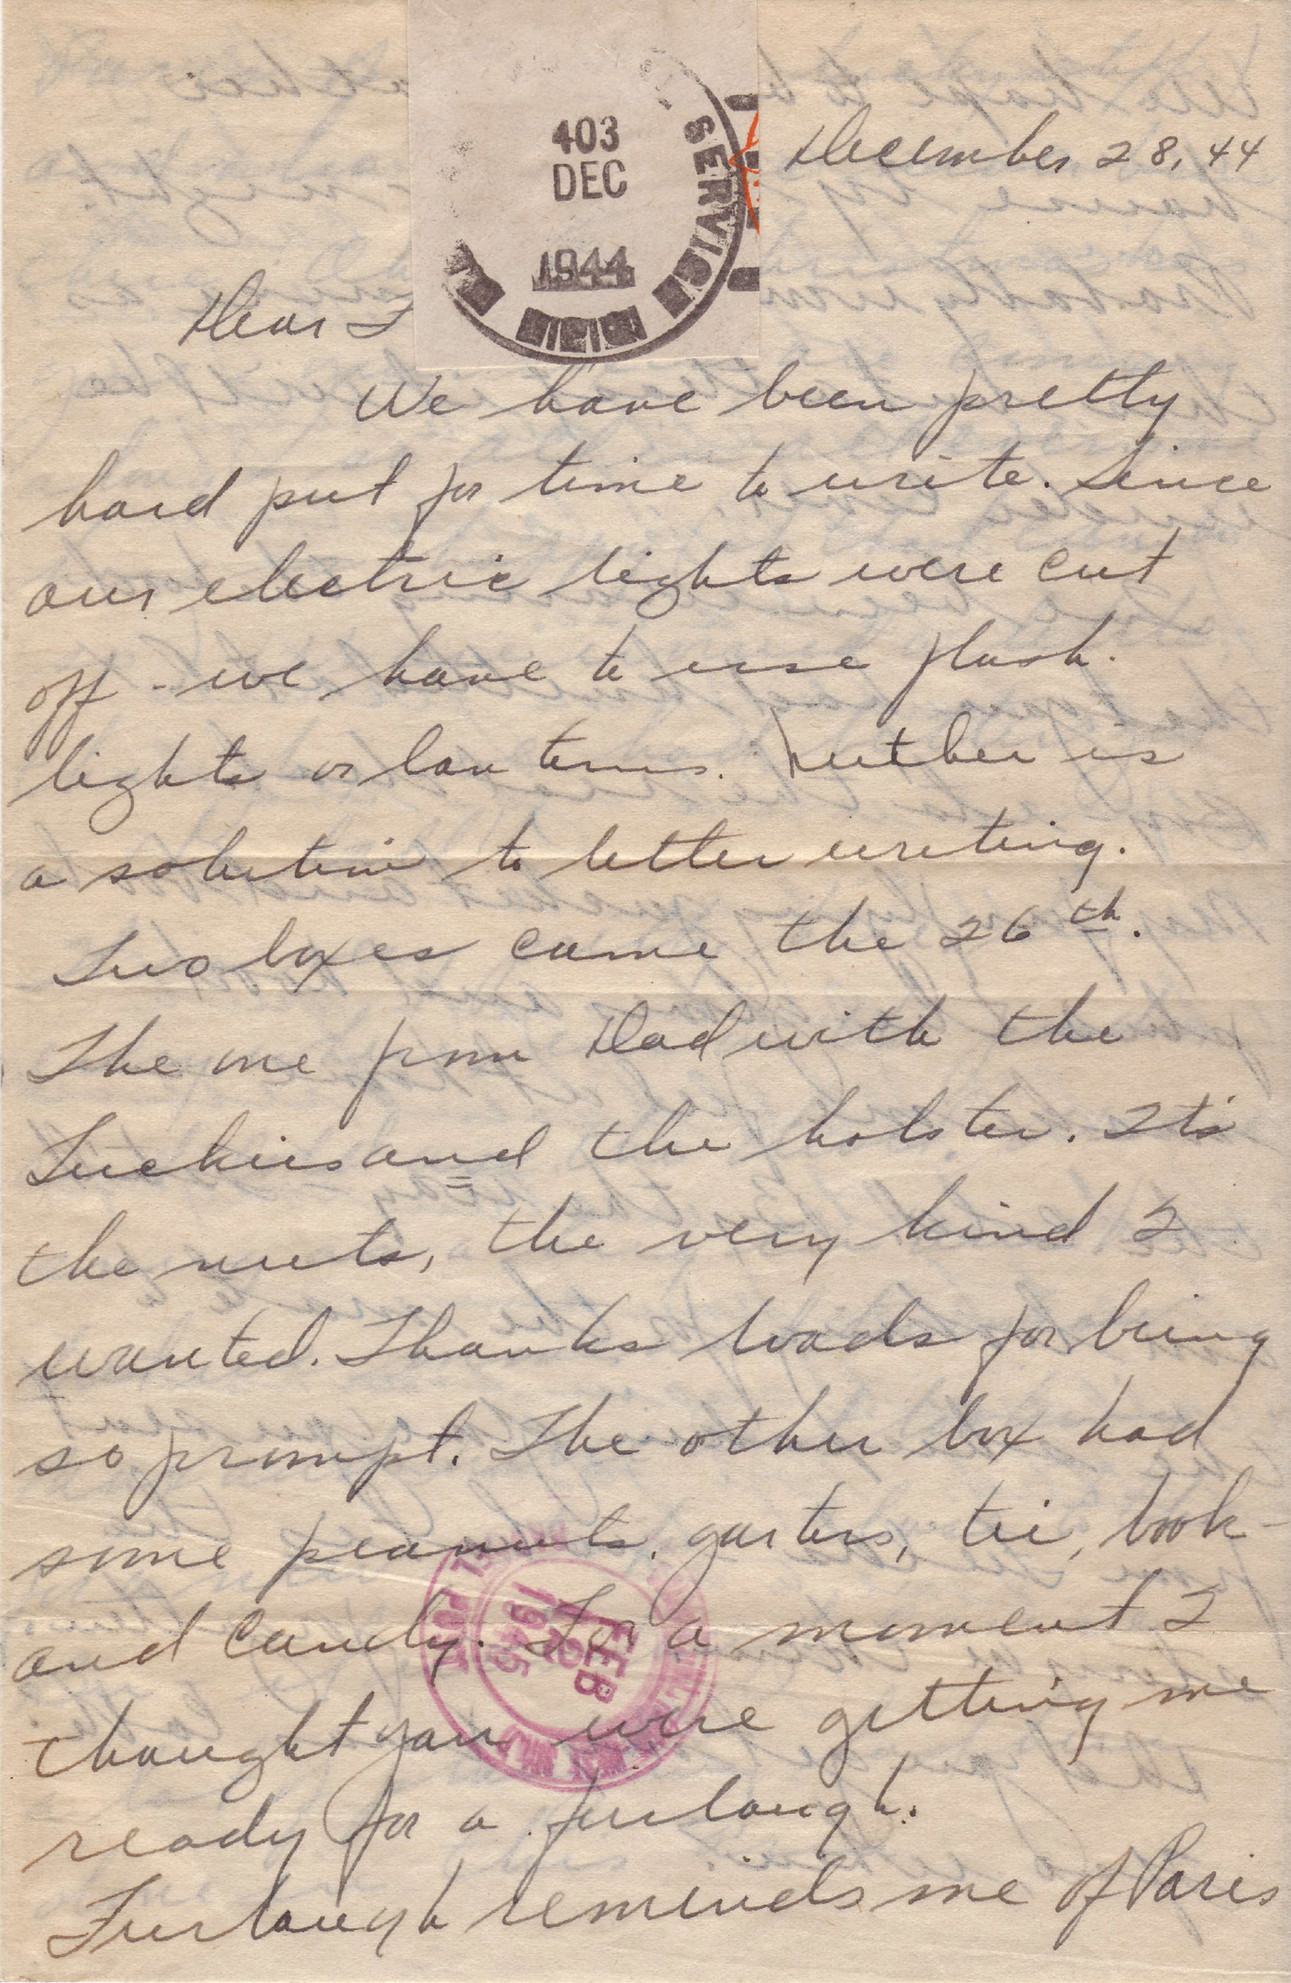 403
DEC
1944
SERVICE
December 28, 44
Dear F
We have been pretty
hard put for time to write. Since
our electric lights were cut
off - we have to use flash.
lights or lanterns. Neither is
a solution to letter writing.
Two boxes came the 26th.
The one from Dad with the
Luckies and the holster. It's
the nuts, the very kind I
wanted. Thanks loads for being
so prompt. The other box had
some peanuts, garters, tie, book-
and candy. For a moment I
thought you were getting me
ready for a furlough.
Furlough reminds me of Paris
FEB
1945